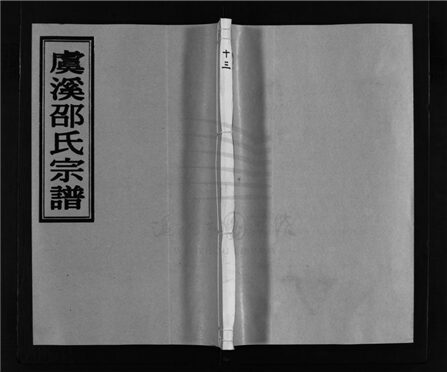 虞溪邵氏宗譜
十三